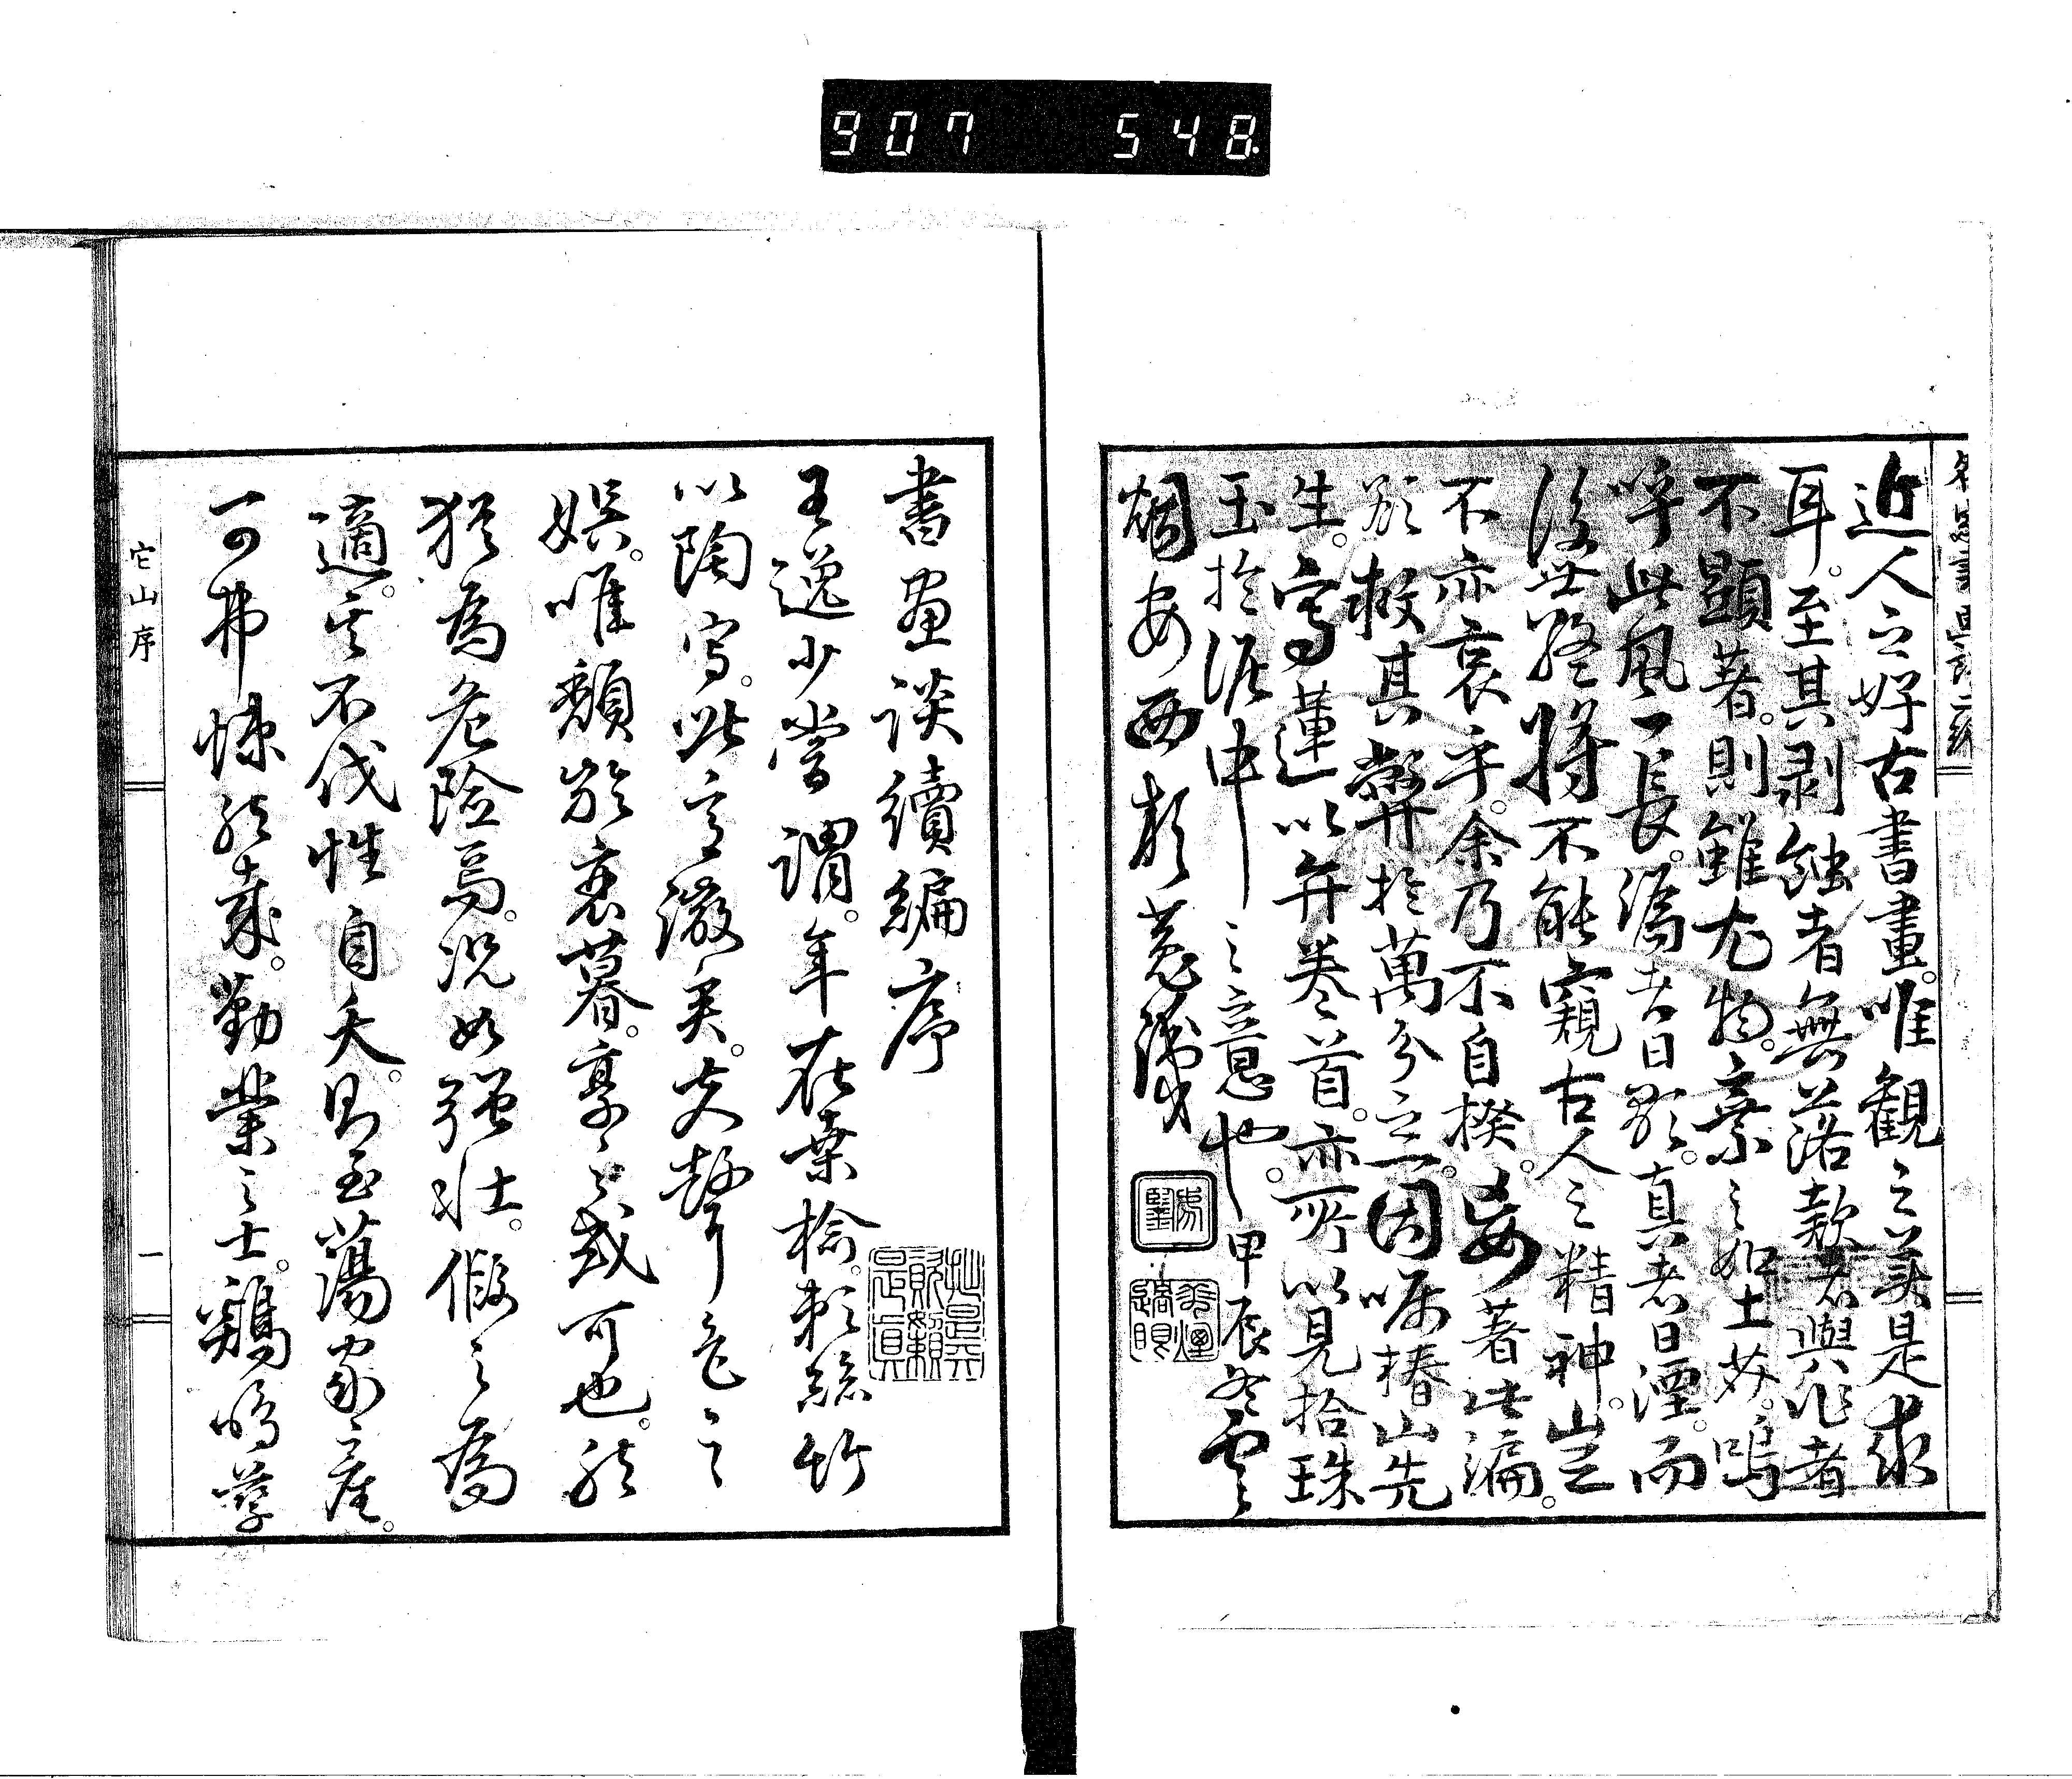 907 548
近人之好古書畫。唯観之美是求
耳。至其剥蝕者無落款者與作者
不顕著。則雖尤物。棄之如土芥。嗚
呼此風一長。偽者日顕。真者日湮。而
後世終将不能窺古人之精神。豈
不亦哀乎。余乃不自揆。妄著此編。
欲救其弊於萬分之一。因嘱椿山先
生。寫蓮以弁巻首。亦所以見拾珠
玉於泥中之意也。甲辰冬雲
烟安西於菟識
書畫談續編序
王逸少嘗謂。年在桑楡。頼絲竹
以陶寫。此言激矣。夫聲色之
娯。唯頽齡衰暮。享之或可也。然
猶為危險焉。況如强壮。假之為
適。其不伐性自夭。則至蕩家産。
可弗悚然哉。勤業之士。鶏鳴孳
它山序 一